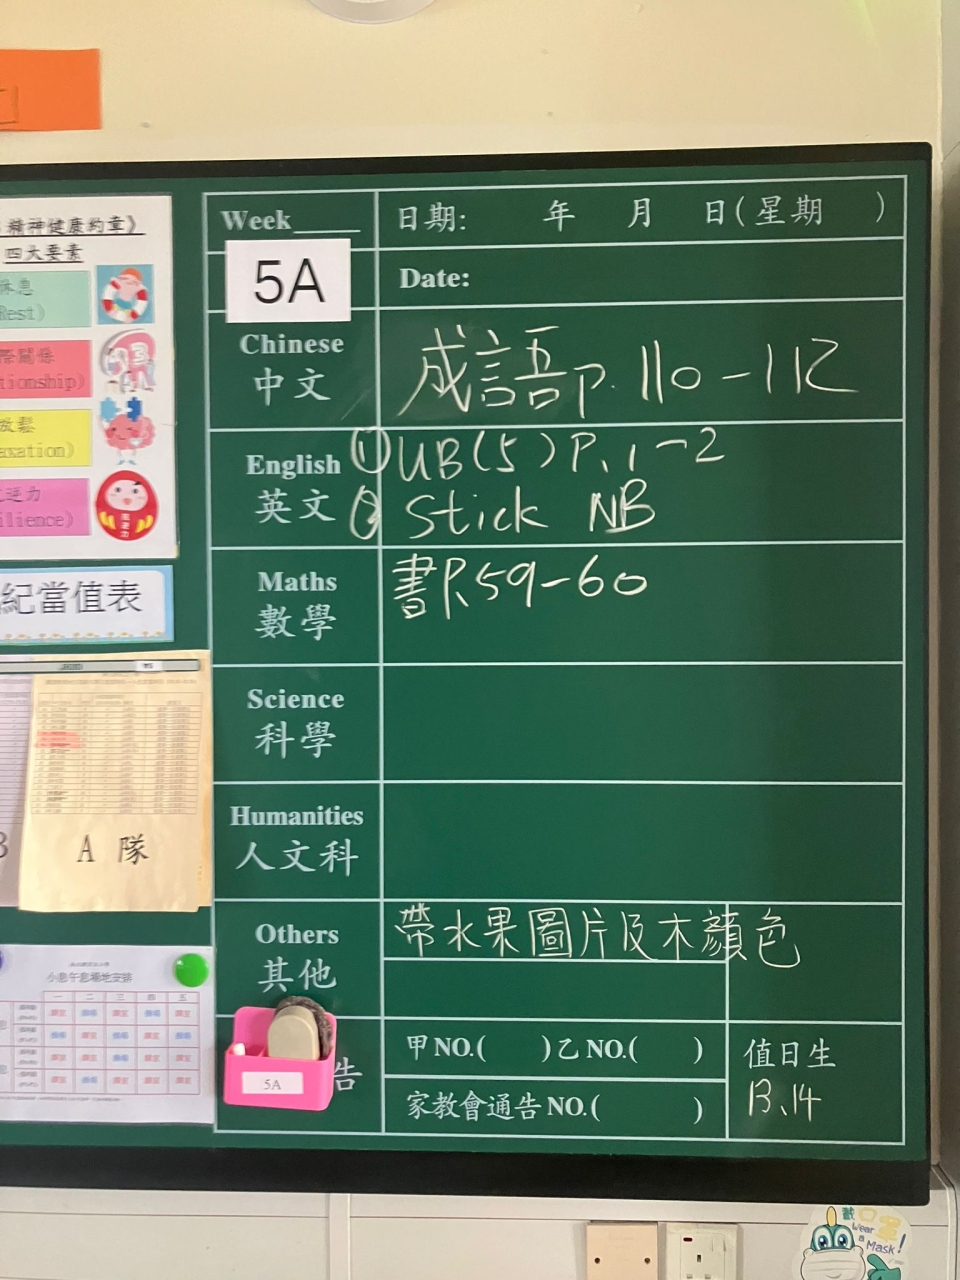 精神健康約章》
四大要素
Rest)
tionship)
放鬆
axation)
逆力
ilience)
紀當值表
A 隊
小息午息場地安排
一 二 三 四 五
Week
5A
日期: 年 月 日(星期 )
Date:
Chinese
中文
成語P. 110-112
English
英文
①UB(5) P.1-2
② Stick NB
Maths
數學
書P.59-60
Science
科學
Humanities
人文科
Others
其他
帶水果圖片及木顏色
告
5A
甲NO.( )乙NO.( )
家教會通告NO.( )
值日生
13、14
Wear
a
Mask!